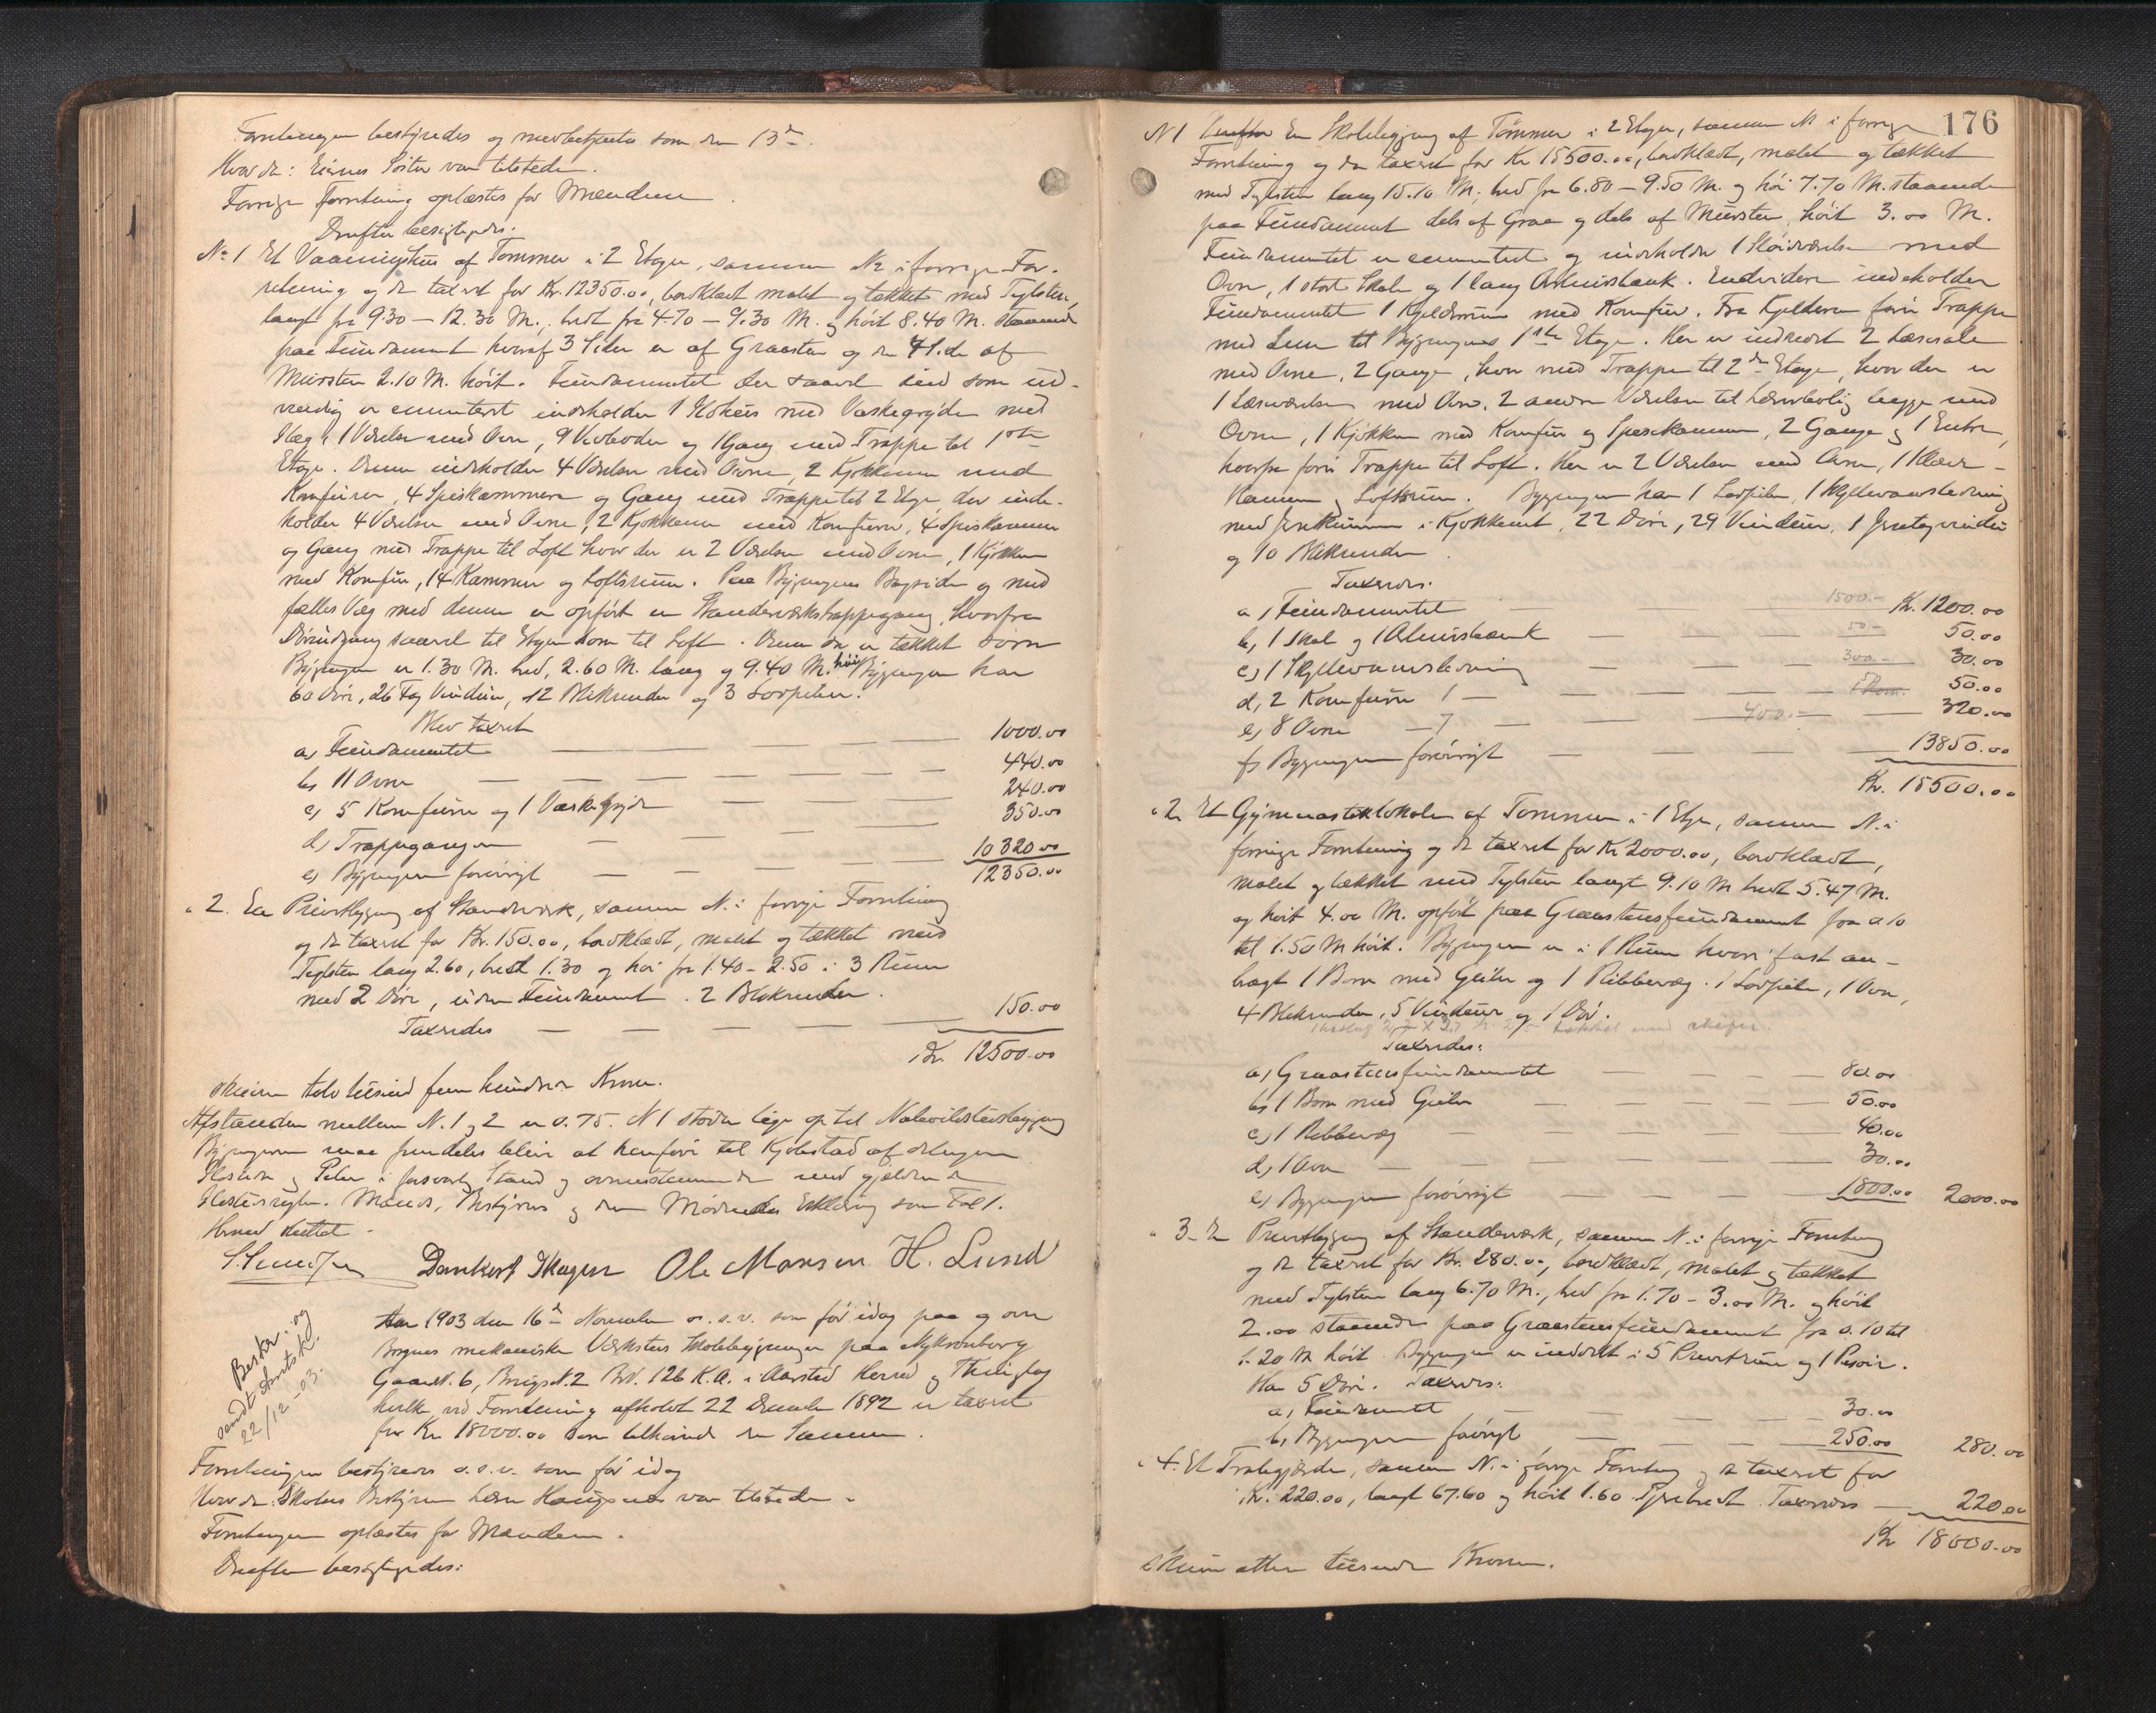 Forretningen bestyredes og medbetjentes som den 13de.
Hvor da: Eiernes Söster var tilstede.
Forrige Forretning oplæstes for Mændene
Derefter besigtigedes:
No 1 Et Vaaningshus af Tömmer i 2 Etager, samme No i forrige For-
retning og da taxeret for Kr. 12350.00, bordklædt malet og tækket med Teglsten,
langt fra 9.30 — 12.30 M., bredt fra 4.70 — 9.30 M. og höit 8.40 M. staaende
paa Fundament hvoraf 3 Sider er af Graasten og den 4 Side af
Mursten 2.10 M. höit. Fundamentet der saavel ind som ud-
vendig er cementeret indeholder 1 Ildhus med Vaskegryde med
1 Værelse med Ovn, 9 Vedboder og 1 Gang med Trappe til 1ste
Etage. Denne indeholder 4 Værelser med Ovne, 2 Kjökkener med
Komfurer, 4 Spiskammere og Gang med Trappe til 2 Etage, der inde-
holder 4 Værelser med Ovne, 2 Kjökkener med Komfurer, 4 Spiskammer
og Gang med Trappe til Loft hvor der er 2 Værelser med Ovne, 1 Kjökken
med Komfur, 14 Kammer og Loftsrum. Paa Bygningens Bagside og med
fælles Væg med denne er opfört en Standerværkstrappegang, hvorfra
Dörindgang saavel til Etagerne som til Loft. Denne der er tækket som
Bygningen er 1.30 M. bred, 2.60 M. lang og 9.40 M. höi. Bygningen har
60 Döre, 26 Fag Vinduer, 12 Blikrender og 3 Skorspiber.
Blev taxeret
a, Fundamentet — 1000.00
b, 11 Ovne — 440.00
c, 5 Komfurer og 1 Vaskegryde — 240.00
d, Trappegangen — 350.00
e, Bygningen forövrigt — 10320.00
12350.00
" 2. En Privetbygning af Standværk, samme No i forrige Forretning
og da taxeret for Kr. 150.00, bordklædt, malet og tækket med
Teglsten lang 2.60, bred 1.30 og höi fra 1.40 - 2.50 i 3 Rum
med 2 Döre, uden Fundament. 2 Blikrender.
Taxeredes — 150.00
Kr. 12500.00
skriver tolv tusind fem hundrede Kroner.
Afstanden mellem No. 1 og 2 er 0.75. No 1 stöder lige op til
Bygningerne maa fremdeles blive at henföre til Kjöbstad afdelingen
Ildsteder og Piber i forsvarlig Stand og overensstemmende med gjældende
Ildstedsregler. Mænds, Bestyrers og den Mödendes Erklæring som Fol 1.
Hermed sluttet.
Dankert Skagen Ole Monsen H. Lund
Beskr. og
sendt Amtsk.
22/12-03.
Aar 1903 den 16de November o. s. v. som för idag paa og over
Bergens mekaniske Værksteds Skolebygninger paa Nykronborg
Gaards N. 6, Brugs N. 2 Br. 126 K.A. i Aarstad Herred og Thinglag
hvilke ved Forretning afholdt 22 December 1892 er taxeret
for Kr. 18000.00 som tilhörende den Samme.
Forretningen bestyredes o. s. v. som för idag
Hvor da: Skolens Bestyrer Lærer var tilstede.
Forretningen oplæstes for Mændene.
Derefter besigtigedes:
176
No 1 En Skolebygning af Tömmer i 2 Etager, samme No i forrige
Forretning og da taxeret for Kr 15500.00, bordklædt, malet og tækket
med Teglsten lang 15.10 M., bred fra 6.80 — 9.50 M. og höi 7.70 M. staaende
paa Fundament dels af Graa og dels af Mursten, höit 3.00 M.
Fundamentet er cementeret og indeholder 1 Slöidværelse med
Ovn, 1 stort Skab og 1 lang Arbeidsbænk. Endvidere indeholder
Fundamentet 1 Kjelderrum med Komfur. Fra Kjelderen förer Trappe
med Lem til Bygningens 1ste Etage. Her er indredet 2 Læsesale
med Ovne, 2 Gange, hvor med Trappe til 2den Etage, hvor der er
1 Læseværelse med Ovn, 2 andre Værelser til Lærerbolig begge med
Ovne, 1 Kjökken med Komfur og Spisekammer, 2 Gange og 1 Entre,
hvorfra förer Trappe til Loft. Her er 2 Værelser med Ovne, 1 Klæde-
Kammer og Loftsrum. Bygningen har 1 Skorpibe, 1 Skyllevandsledning
med Jernkumme i Kjökkenet, 22 Döre, 29 Vinduer, 1 Jerntagvindu
og 10 Blikrender.
Taxeredes:
a, Fundamentet — 1500.- Kr. 1200.00
b, 1 Skab og 1 Arbeidsbænk — 50.- 50.00
c, 1 Skyllevandsledning — 300.- 30.00
d, 2 Komfurer 1 — 50.00
e, 8 Ovne — 7 — 400.- 320.00
f, Bygningen forövrigt — 13850.00
Kr. 15500.00
" 2. Et Gymnastiklokale af Tömmer i 1 Etage, samme No i
forrige Forretning og da taxeret for Kr 2000.00, bordklædt,
malet og tækket med Teglsten langt 9.10 M bredt 5.47 M.
og höit 4.00 M. opfört paa Graastensfundament fra 0.10
til 1.50 M höit. Bygningen er i 1 Rum hvori fast an-
bragt 1 Bom med Guiler og 1 Ribbevæg. 1 Skorpibe, 1 Ovn,
4 Blikrender, 5 Vinduer og 1 Dör.
tækket med skifer.
Taxeredes:
a, Graastensfundamentet — 80.00
b, 1 Bom med Guiler — 50.00
c, 1 Ribbevæg — 40.00
d, 1 Ovn — 30.00
e, Bygningen forövrigt — 1800.00 2000.00
" 3. En Privetbygning af Standerværk, samme No i forrige Forretning
og da taxeret for Kr. 280.00, bordklædt, malet og tækket
med Teglsten lang 6.70 M., bred fra 1.70 - 3.00 M. og höit
2.00 staaende paa Graastensfundament fra 0.10 til
1.20 M höit. Bygningen er inddelt i 5 Privetrum og 1 Pissoir.
Har 5 Döre. Taxeredes:
a, Fundamentet — 30.00
b, Bygningen forövrigt — 250.00 280.00
" 4. Et Trægjærde, samme No i forrige Forretning og da taxeret for
Kr. 220.00, langt 67.60 og höit 1.60. Taxeredes — 220.00
Kr 18000.00
skriver atten tusende Kroner.